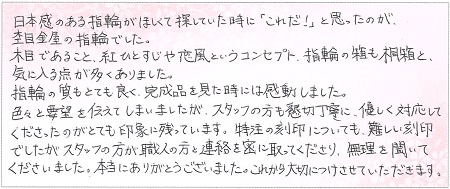 日本感のある指輪がほしくて探していた時に「これだ!」と思ったのが、
杢目金屋の指輪でした。
木目であること、紅ひとすじや恋風というコンセプト、指輪の箱も桐箱と、
気に入る点が多くありました。
指輪の質もとても良く、完成品を見た時には感動しました。
色々と要望を伝えてしまいましたが、スタッフの方も懇切丁寧に、優しく対応して
くださったのがとても印象に残っています。特注の刻印についても、難しい刻印
でしたがスタッフの方が職人の方と連絡を密に取ってくださり、無理を聞いて
くださいました。本当にありがとうございました。これから大切につけさせていただきます。